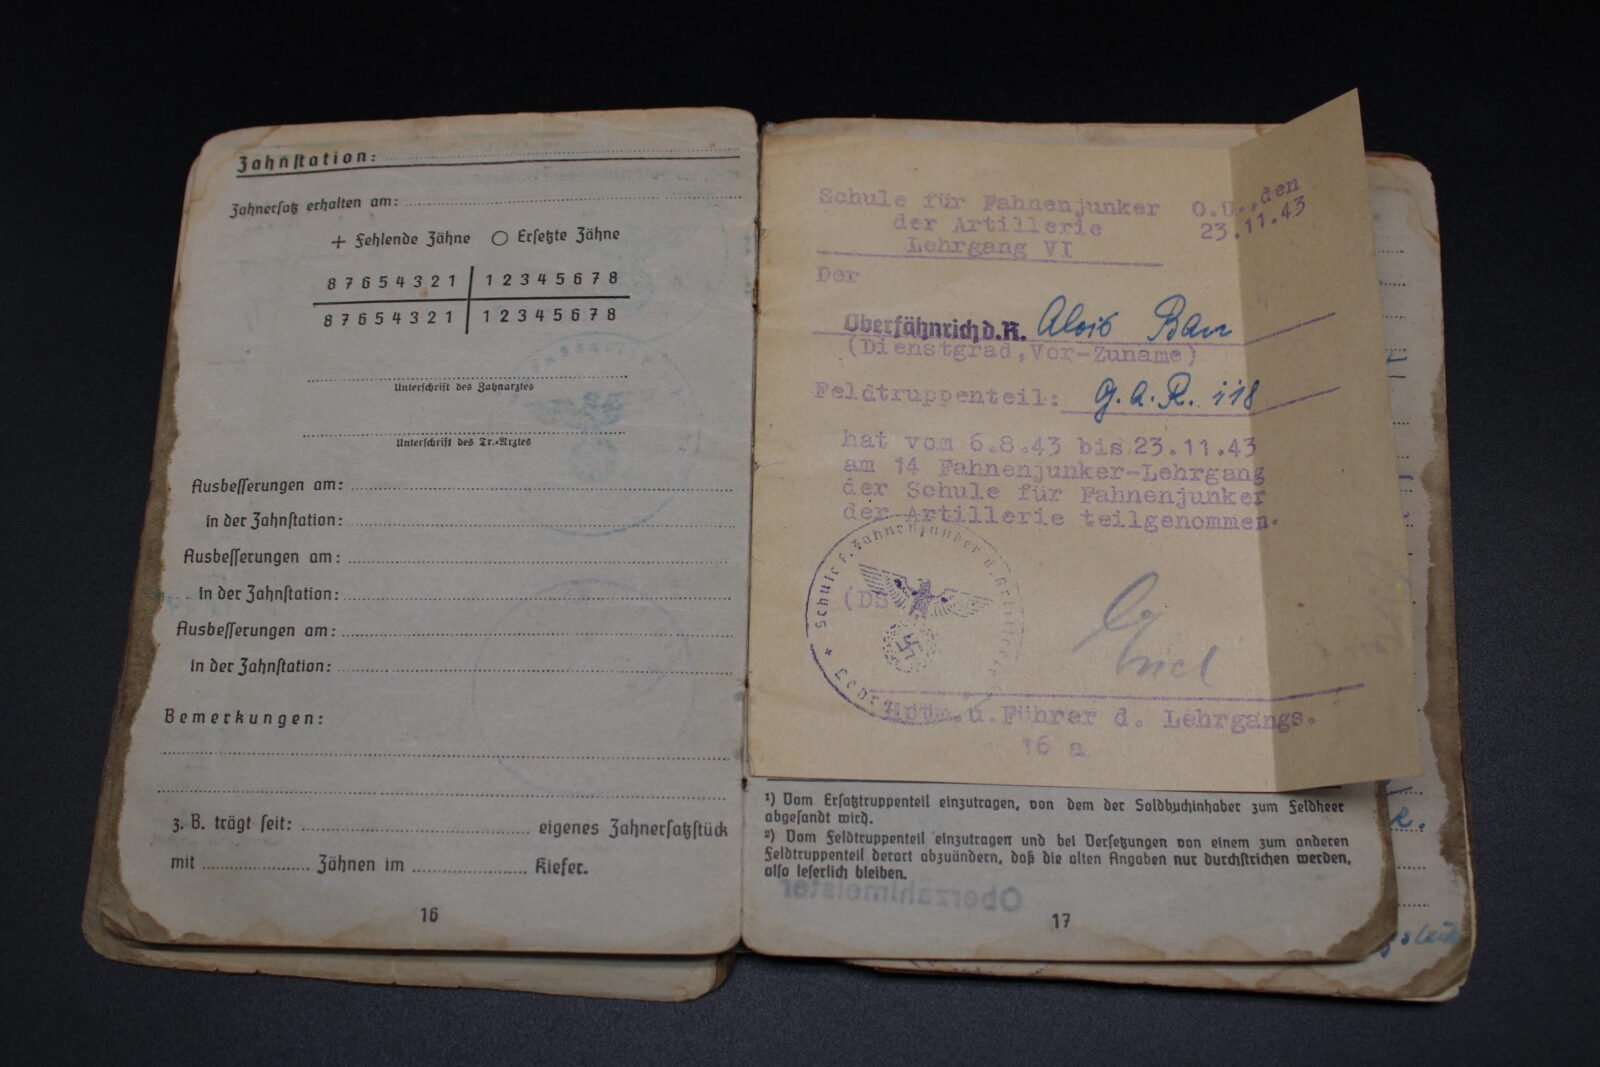 Zahnstation:
Zahnersatz erhalten am:
+ Fehlende Zähne ○ Ersetzte Zähne
8 7 6 5 4 3 2 1 | 1 2 3 4 5 6 7 8
8 7 6 5 4 3 2 1 | 1 2 3 4 5 6 7 8
Unterschrift des Zahnarztes
Unterschrift des Tr.-Arztes
Ausbesserungen am:
in der Zahnstation:
Ausbesserungen am:
in der Zahnstation:
Ausbesserungen am:
in der Zahnstation:
Bemerkungen:
z. B. trägt seit: eigenes Zahnersatzstück
mit Zähnen im Kiefer.
16
Schule für Fahnenjunker O.U., den
der Artillerie 23.11.43
Lehrgang VI
Der
Oberfähnrich d.R. Alois
(Dienstgrad, Vor-Zuname)
Feldtruppenteil: G.A.R. 118
hat vom 6.8.43 bis 23.11.43
am 14 Fahnenjunker-Lehrgang
der Schule für Fahnenjunker
der Artillerie teilgenommen.
Schule f. Fahnenjunker d. Artillerie
(DS
Hptm.u.Führer d. Lehrgangs.
16 a
¹) Vom Ersatztruppenteil einzutragen, von dem der Soldbuchinhaber zum Feldheer
abgesandt wird.
²) Vom Feldtruppenteil einzutragen und bei Versetzungen von einem zum anderen
Feldtruppenteil derart abzuändern, daß die alten Angaben nur durchstrichen werden,
also leserlich bleiben.
Oberzahlmeister
17